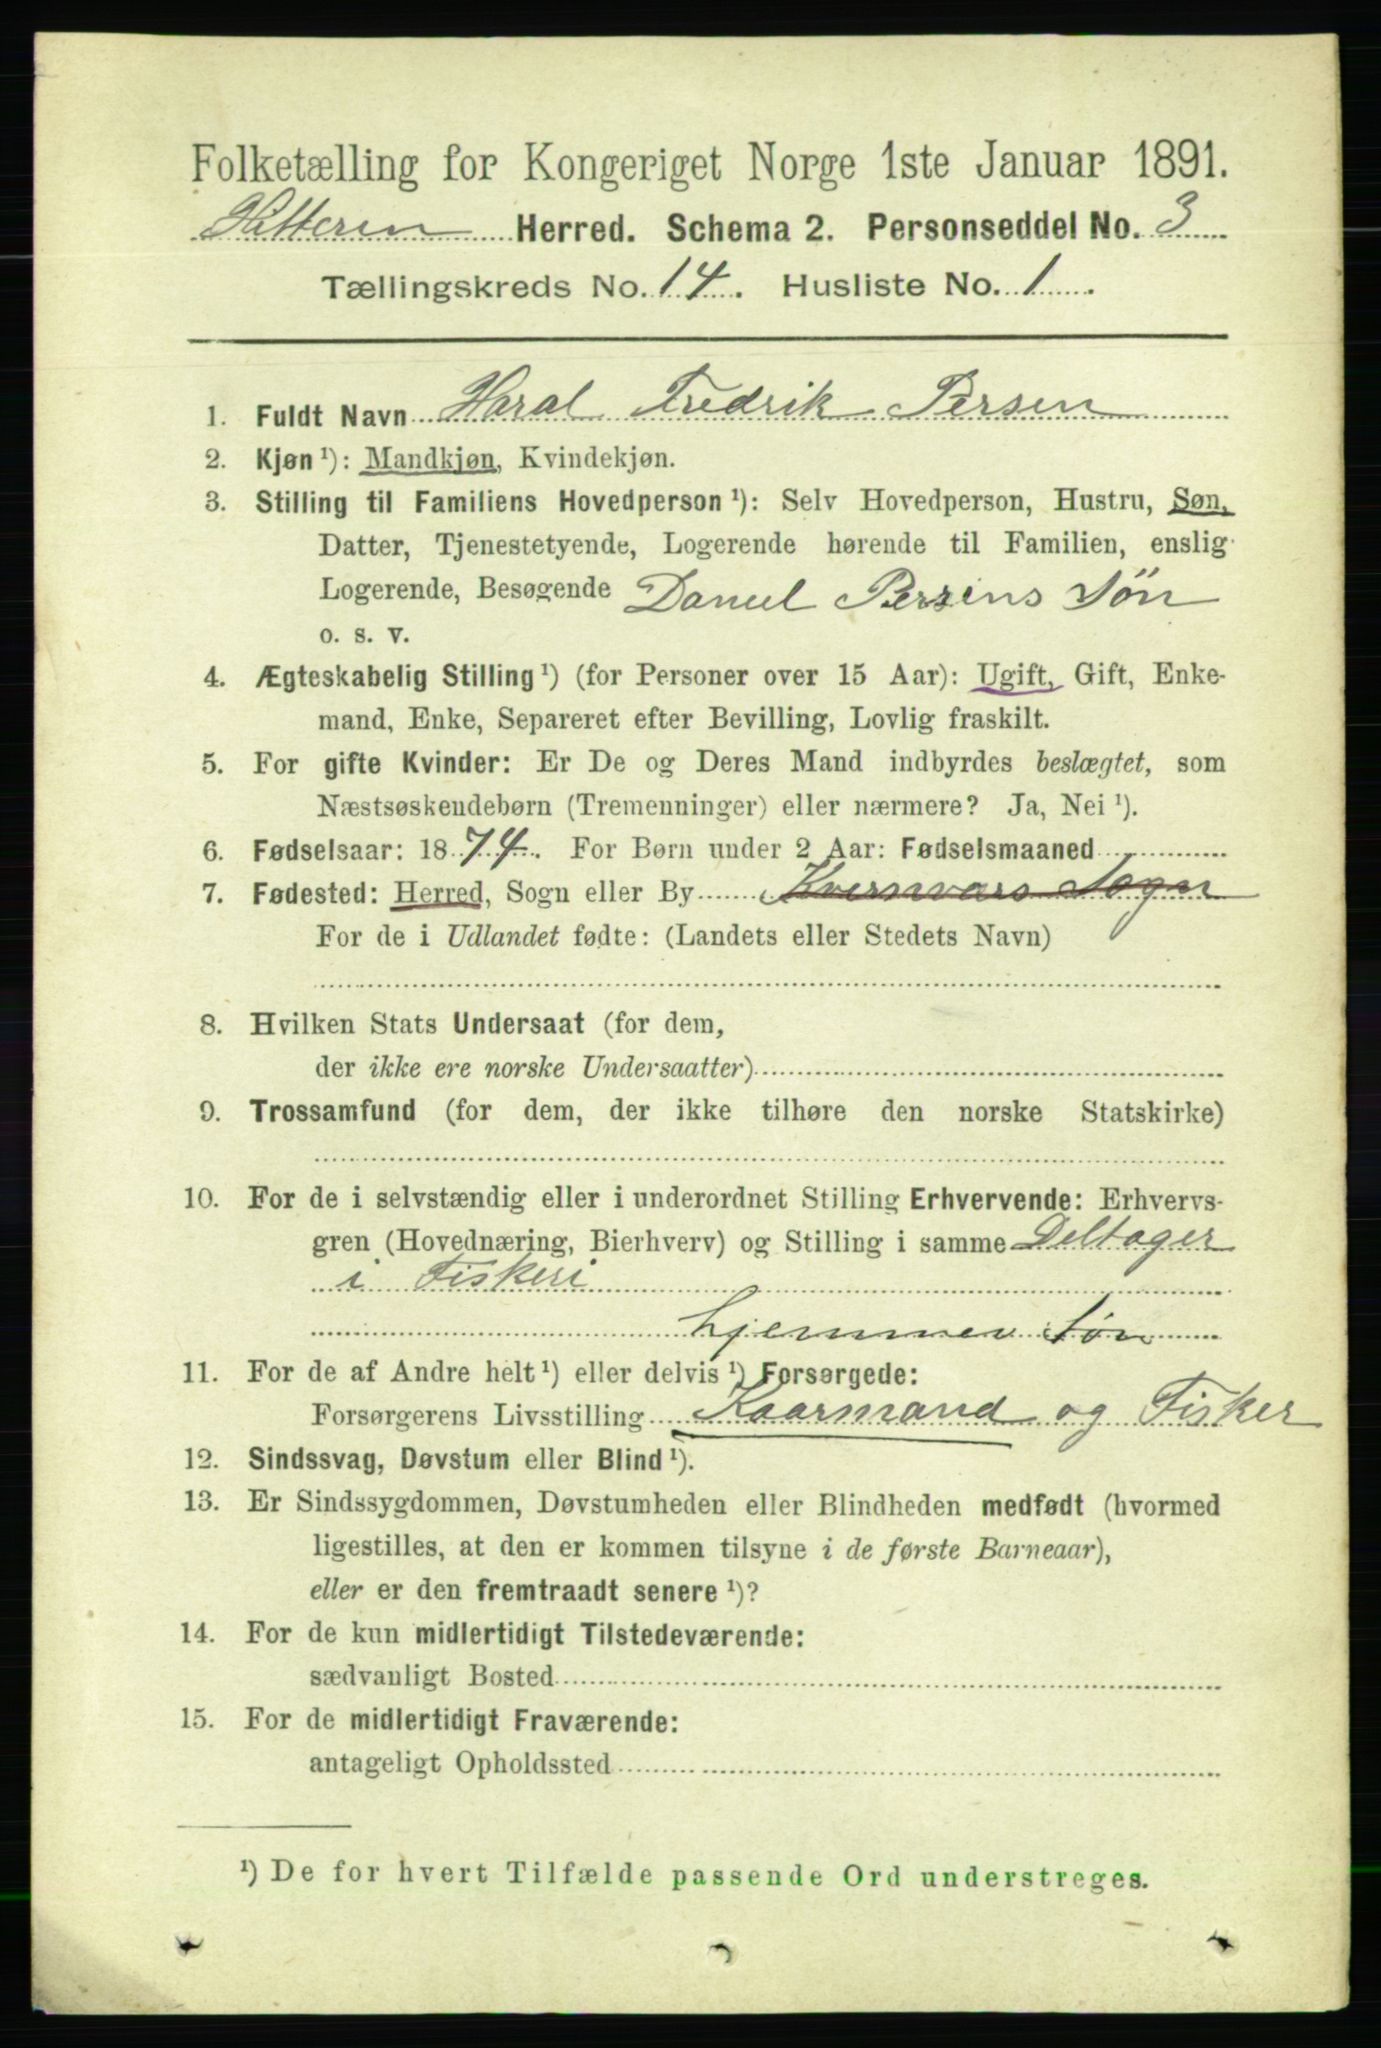 Folketælling for Kongeriget Norge 1ste Januar 1891.
Hitteren Herred. Schema 2. Personseddel No. 3
Tællingskreds No. 14. Husliste No. 1.
1. Fuldt Navn Haral Fredrik Persen
2. Kjøn ¹): Mandkjøn, Kvindekjøn.
3. Stilling til Familiens Hovedperson ¹): Selv Hovedperson, Hustru, Søn,
Datter, Tjenestetyende, Logerende hørende til Familien, enslig
Logerende, Besøgende Daniel Persens Søn
o. s. v.
4. Ægteskabelig Stilling ¹) (for Personer over 15 Aar): Ugift, Gift, Enke-
mand, Enke, Separeret efter Bevilling, Lovlig fraskilt.
5. For gifte Kvinder: Er De og Deres Mand indbyrdes beslægtet, som
Næstsøskendebørn (Tremenninger) eller nærmere? Ja, Nei ¹).
6. Fødselsaar: 1874. For Børn under 2 Aar: Fødselsmaaned
7. Fødested: Herred, Sogn eller By Kvernværs Sogn
For de i Udlandet fødte: (Landets eller Stedets Navn)
8. Hvilken Stats Undersaat (for dem,
der ikke ere norske Undersaatter)
9. Trossamfund (for dem, der ikke tilhøre den norske Statskirke)
10. For de i selvstændig eller i underordnet Stilling Erhvervende: Erhvervs-
gren (Hovednæring, Bierhverv) og Stilling i samme Deltager
i Fiskeri
hjemmev. Søn
11. For de af Andre helt ¹) eller delvis ¹) Forsørgede:
Forsørgerens Livsstilling Kaarmand og Fisker
12. Sindssvag, Døvstum eller Blind ¹).
13. Er Sindssygdommen, Døvstumheden eller Blindheden medfødt (hvormed
ligestilles, at den er kommen tilsyne i de første Barneaar),
eller er den fremtraadt senere ¹)?
14. For de kun midlertidigt Tilstedeværende:
sædvanligt Bosted
15. For de midlertidigt Fraværende:
antageligt Opholdssted
¹) De for hvert Tilfælde passende Ord understreges.